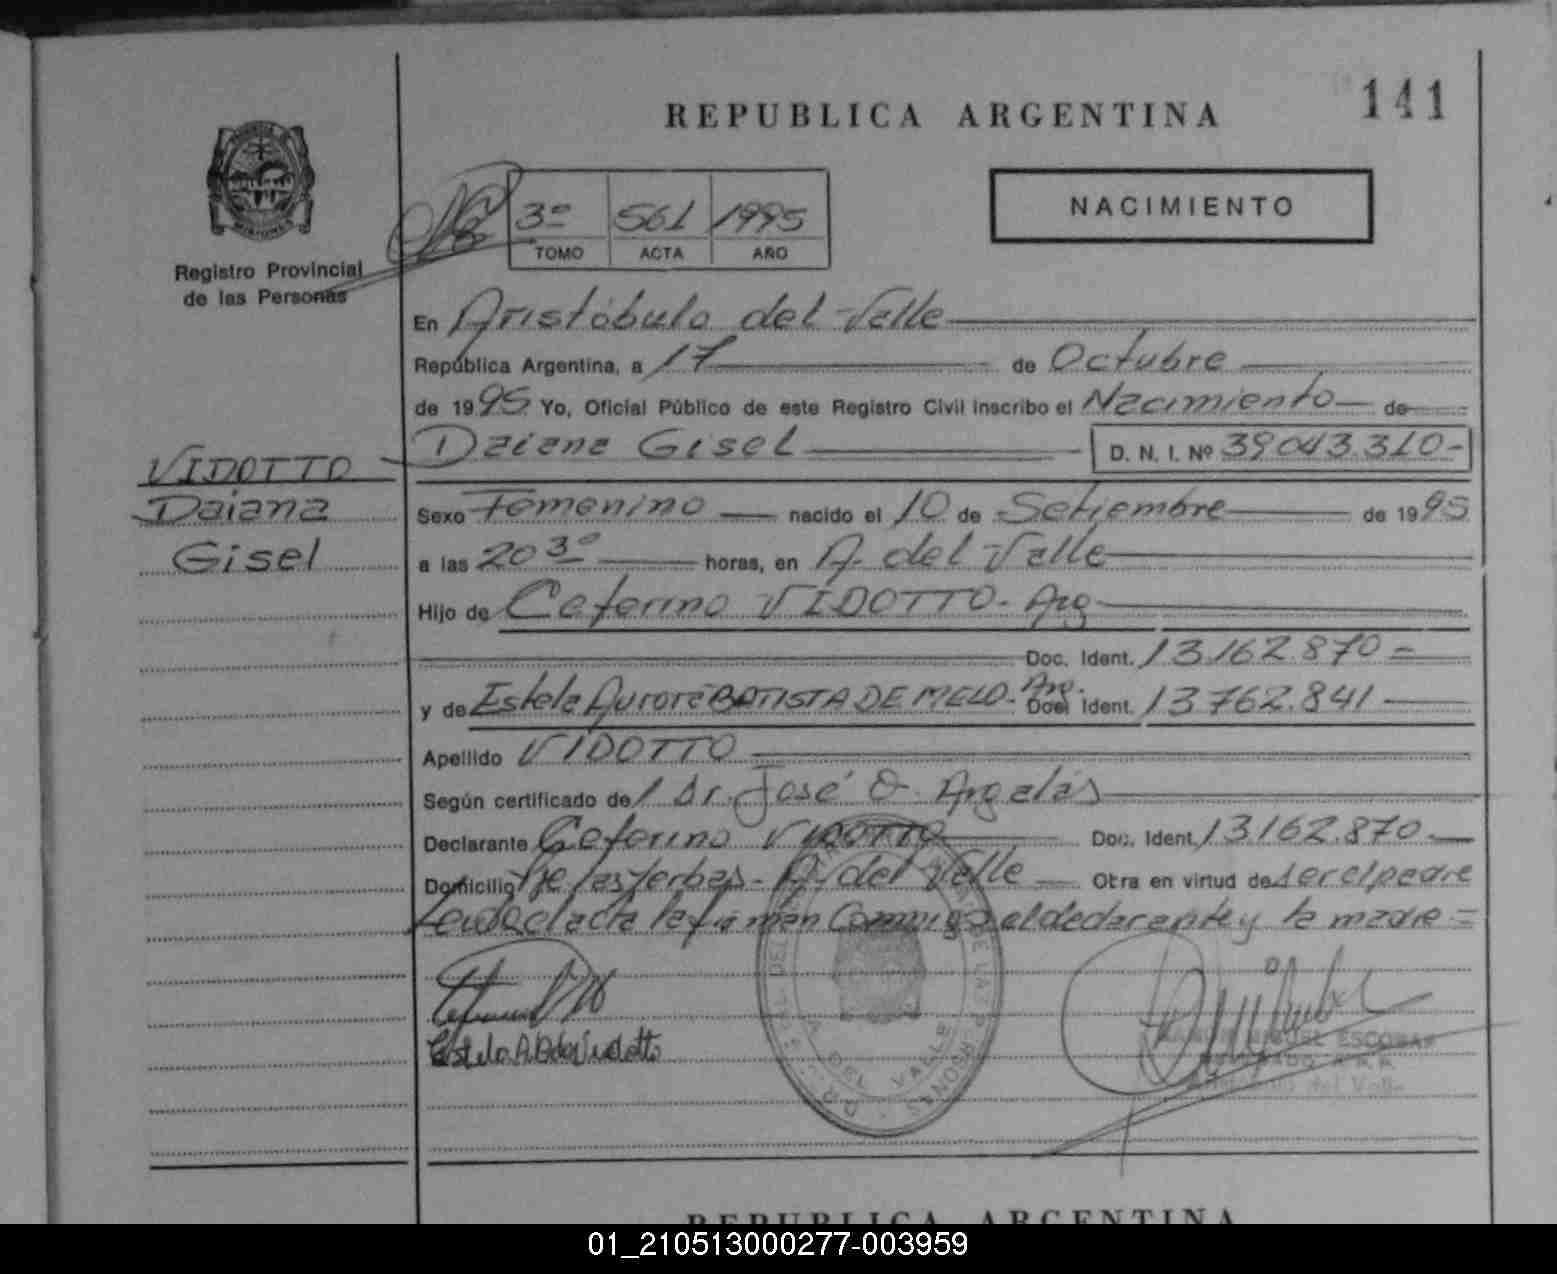 REPUBLICA ARGENTINA
141
Registro Provincial
de las Personas
3º 561 1995
TOMO ACTA AÑO
NACIMIENTO
En Aristóbulo del Valle
República Argentina, a 17 de Octubre
de 1995 Yo, Oficial Público de este Registro Civil inscribo el Nacimiento de
VIDOTTO
Daiana
Gisel
Daiana Gisel D. N. I. Nº 39043.310-
Sexo Femenino nacido el 10 de Setiembre de 1995
a las 20 30 horas, en A. del Valle
Hijo de Ceferino VIDOTTO - Arg
Doc. Ident. 13.162.870 =
y de Estela Aurora BATISTA DE MELO - Arg. Doc. Ident. 13.762.841
Apellido VIDOTTO
Según certificado del Dr. José O. Argalás
Declarante Ceferino VIDOTTO Doc. Ident. 13.162.870.
Domicilio Tte las Yerbas - A. del Valle Otra en virtud de ser el padre
Leida el acta la firman Conmigo el declarante y la madre =
Estela A. B de Vidotto
A DEL VALLE
MIGUEL ESCOBAR
del Valle
REPUBLICA ARGENTINA
01_210513000277-003959